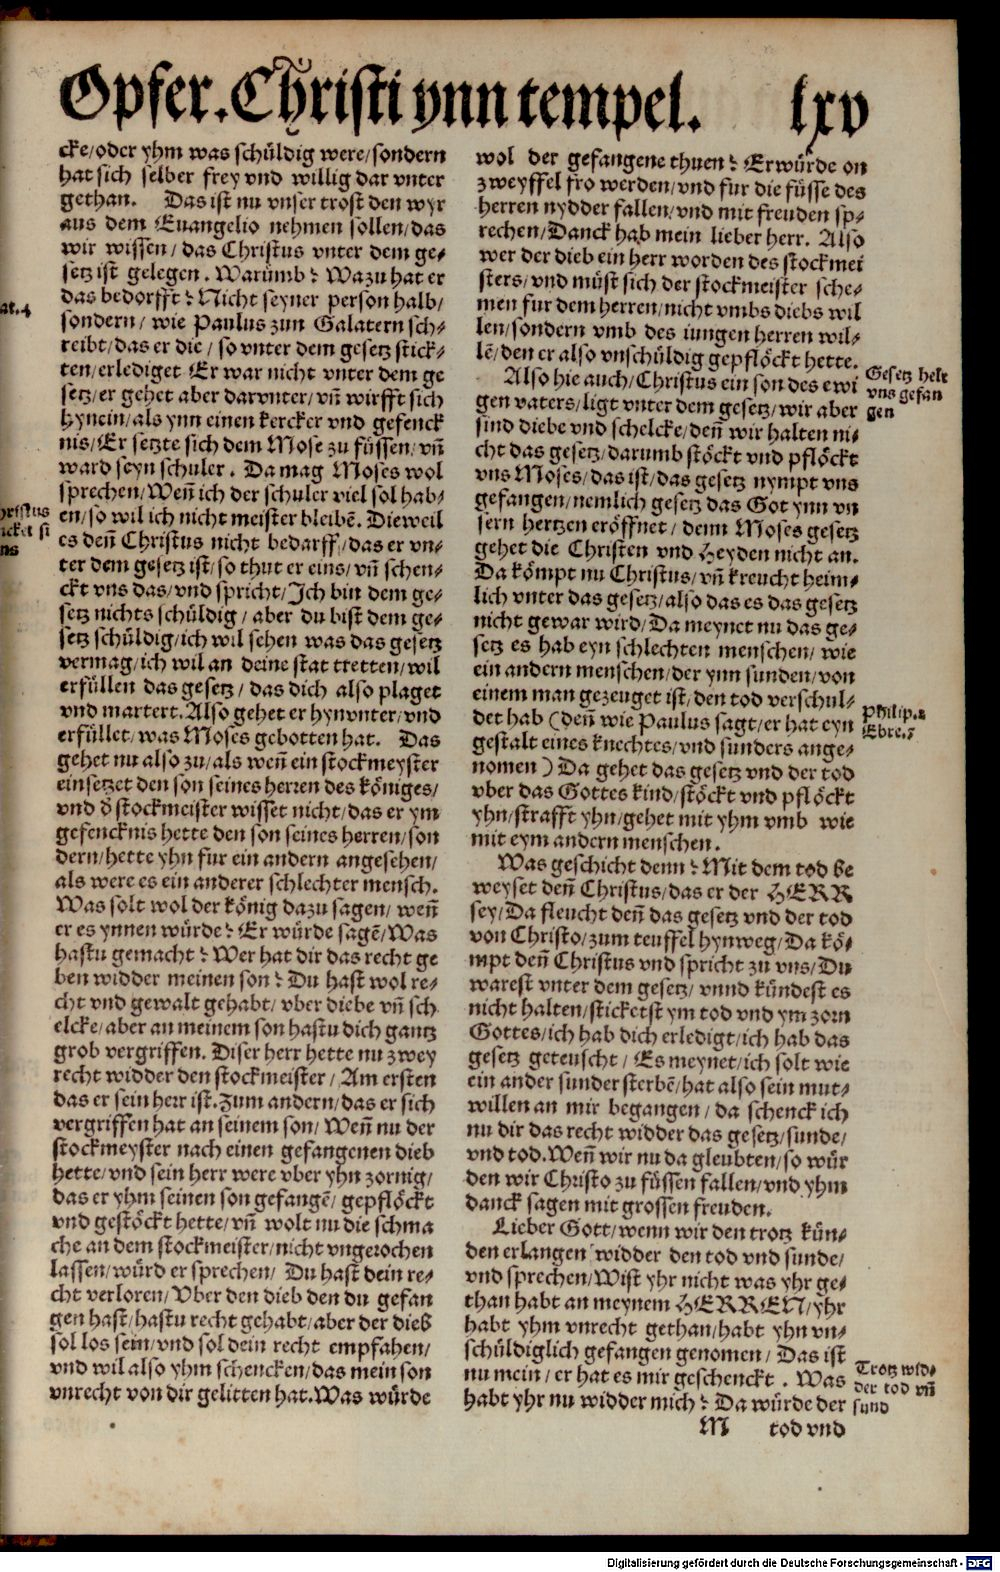 Opfer. Christi ynn tempel. lxv
cke/oder yhm was schüldig were/sondern
hat sich selber frey vnd willig dar vnter
gethan. Das ist nu vnser trost den wyr
aus dem Euangelio nehmen sollen/das
wir wissen/das Christus vnter dem ge-
setz ist gelegen. Warümb? Wazu hat er
das bedorfft? Nicht seyner person halb/
sondern/wie Paulus zun Galatern sch-
reibt/das er die/so vnter dem gesetz stick-
ten/erlediget Er war nicht vnter dem ge
setz/er gehet aber darvnter/vñ wirfft sich
hynein/als ynn einen kercker vnd gefenck
nis/Er setzte sich dem Mose zu füssen/vñ
ward seyn schuler. Da mag Moses wol
sprechen/Weñ ich der schuler viel sol hab-
en/so wil ich nicht meister bleibẽ. Die weil
es deñ Christus nicht bedarff/das er vn-
ter dem gesetz ist/so thut er eins/vñ schen-
ckt vns das/vnd spricht/Ich bin dem ge-
setz nichts schüldig/aber du bist dem ge-
setz schüldig/ich wil sehen was das gesetz
vermag/ich wil an deine stat tretten/wil
erfüllen das gesetz/das dich also plaget
vnd martert. Also gehet er hynvnter/vnd
erfüllet/was Moses gebotten hat. Das
gehet nu also zu/als weñ ein stockmeyster
einsetzet den son seines herren des königes/
vnd d̕ stockmeister wisset nicht/das er ym
gefencknis hette den son seines herren/son
dern/hette yhn fur ein andern angesehen/
als were es ein anderer schlechter mensch.
Was solt wol der könig dazu sagen/weñ
er es ynnen würde? Er würde sagẽ/Was
hastu gemacht? Wer hat dir das recht ge
ben widder meinen son? Du hast wol re-
cht vnd gewalt gehabt/vber diebe vñ sch
elcke/aber an meinem son hastu dich gantz
grob vergriffen. Diser herr hette nu zwey
recht widder den stockmeister/Am ersten
das er sein herr ist. Zum andern/das er sich
vergriffen hat an seinem son/Weñ nu der
stockmeyster nach einen gefangenen dieb
hette/vnd sein herr were vber yhn zornig/
das er yhm seinen son gefangẽ/gepflöckt
vnd gestöckt hette/vñ wolt nu die schma
che an dem stockmeister/nicht vngerochen
lassen/würd er sprechen/Du hast dein re-
cht verloren/Vber den dieb den du gefan
gen hast/hastu recht gehabt/aber der dieb
sol los sein/vnd sol dein recht empfahen/
vnd wil also yhm schencken/das mein son
vnrecht von dir gelitten hat. Was würde
at. 4
hristus
icket si
ns
wol der gefangene thuen? Er würde on
zweyffel fro werden/vnd fur die füsse des
herren nydder fallen/vnd mit freuden sp-
rechen/Danck hab mein lieber herr. Also
wer der dieb ein herr worden des stockmei
sters/vnd müst sich der stockmeister sche-
men fur dem herren/nicht vmbs diebs wil
len/sondern vmb des iungen herren wil-
lẽ/den er also vnschüldig gepflöckt hette.
Also hie auch/Christus ein son des ewi
gen vaters/ligt vnter dem gesetz/wir aber
sind diebe vnd schelcke/deñ wir halten ni-
cht das gesetz/darumb stöckt vnd pflöckt
vns Moses/das ist/das gesetz nympt vns
gefangen/nemlich gesetz das Got ynn vn
sern hertzen eröffnet/denn Moses gesetz
gehet die Christen vnd Heyden nicht an.
Da kömpt nu Christus/vñ kreucht heim-
lich vnter das gesetz/also das es das gesetz
nicht gewar wird/Da meynet nu das ge-
setz es hab eyn schlechten menschen/wie
ein andern menschen/der ynn sunden/von
einem man gezeuget ist/den tod verschul-
det hab (deñ wie Paulus sagt/er hat eyn
gestalt eines knechtes/vnd sunders ange-
nomen) Da gehet das gesetz vnd der tod
vber das Gottes kind/stöckt vnd pflöckt
yhn/strafft yhn/gehet mit yhm vmb wie
mit eym andern menschen.
Was geschicht denn? Mit dem tod be
weyset deñ Christus/das er der HERR
sey/Da fleucht deñ das gesetz vnd der tod
von Christo/zum teuffel hynweg/Da kö-
mpt deñ Christus vnd spricht zu vns/Du
warest vnter dem gesetz/vnnd kündest es
nicht halten/sticketst ym tod vnd ym zorn
Gottes/ich hab dich erledigt/ich hab das
gesetz geteuscht/Es meynet/ich solt wie
ein ander sunder sterbẽ/hat also sein mut-
willen an mir begangen/da schenck ich
nu dir das recht widder das gesetz/sunde/
vnd tod. Weñ wir nu da gleubten/so wür
den wir Christo zu füssen fallen/vnd yhm
danck sagen mit grossen freuden.
Lieber Gott/wenn wir den trotz kün-
den erlangen widder den tod vnd sunde/
vnd sprechen/Wist yhr nicht was yhr ge-
than habt an meynem HERREN/yhr
habt yhm vnrecht gethan/habt yhn vn-
schüldiglich gefangen genomen/Das ist
nu mein/er hat es mir geschenckt. Was
habt yhr nu widder mich? Da würde der
M tod vnd
Gesetz helt
vns gefan
gen
Philip. 2
Ebre. 7
Trotz wid-
der tod vñ
sund
Digitalisierung gefördert durch die Deutsche Forschungsgemeinschaft - DFG